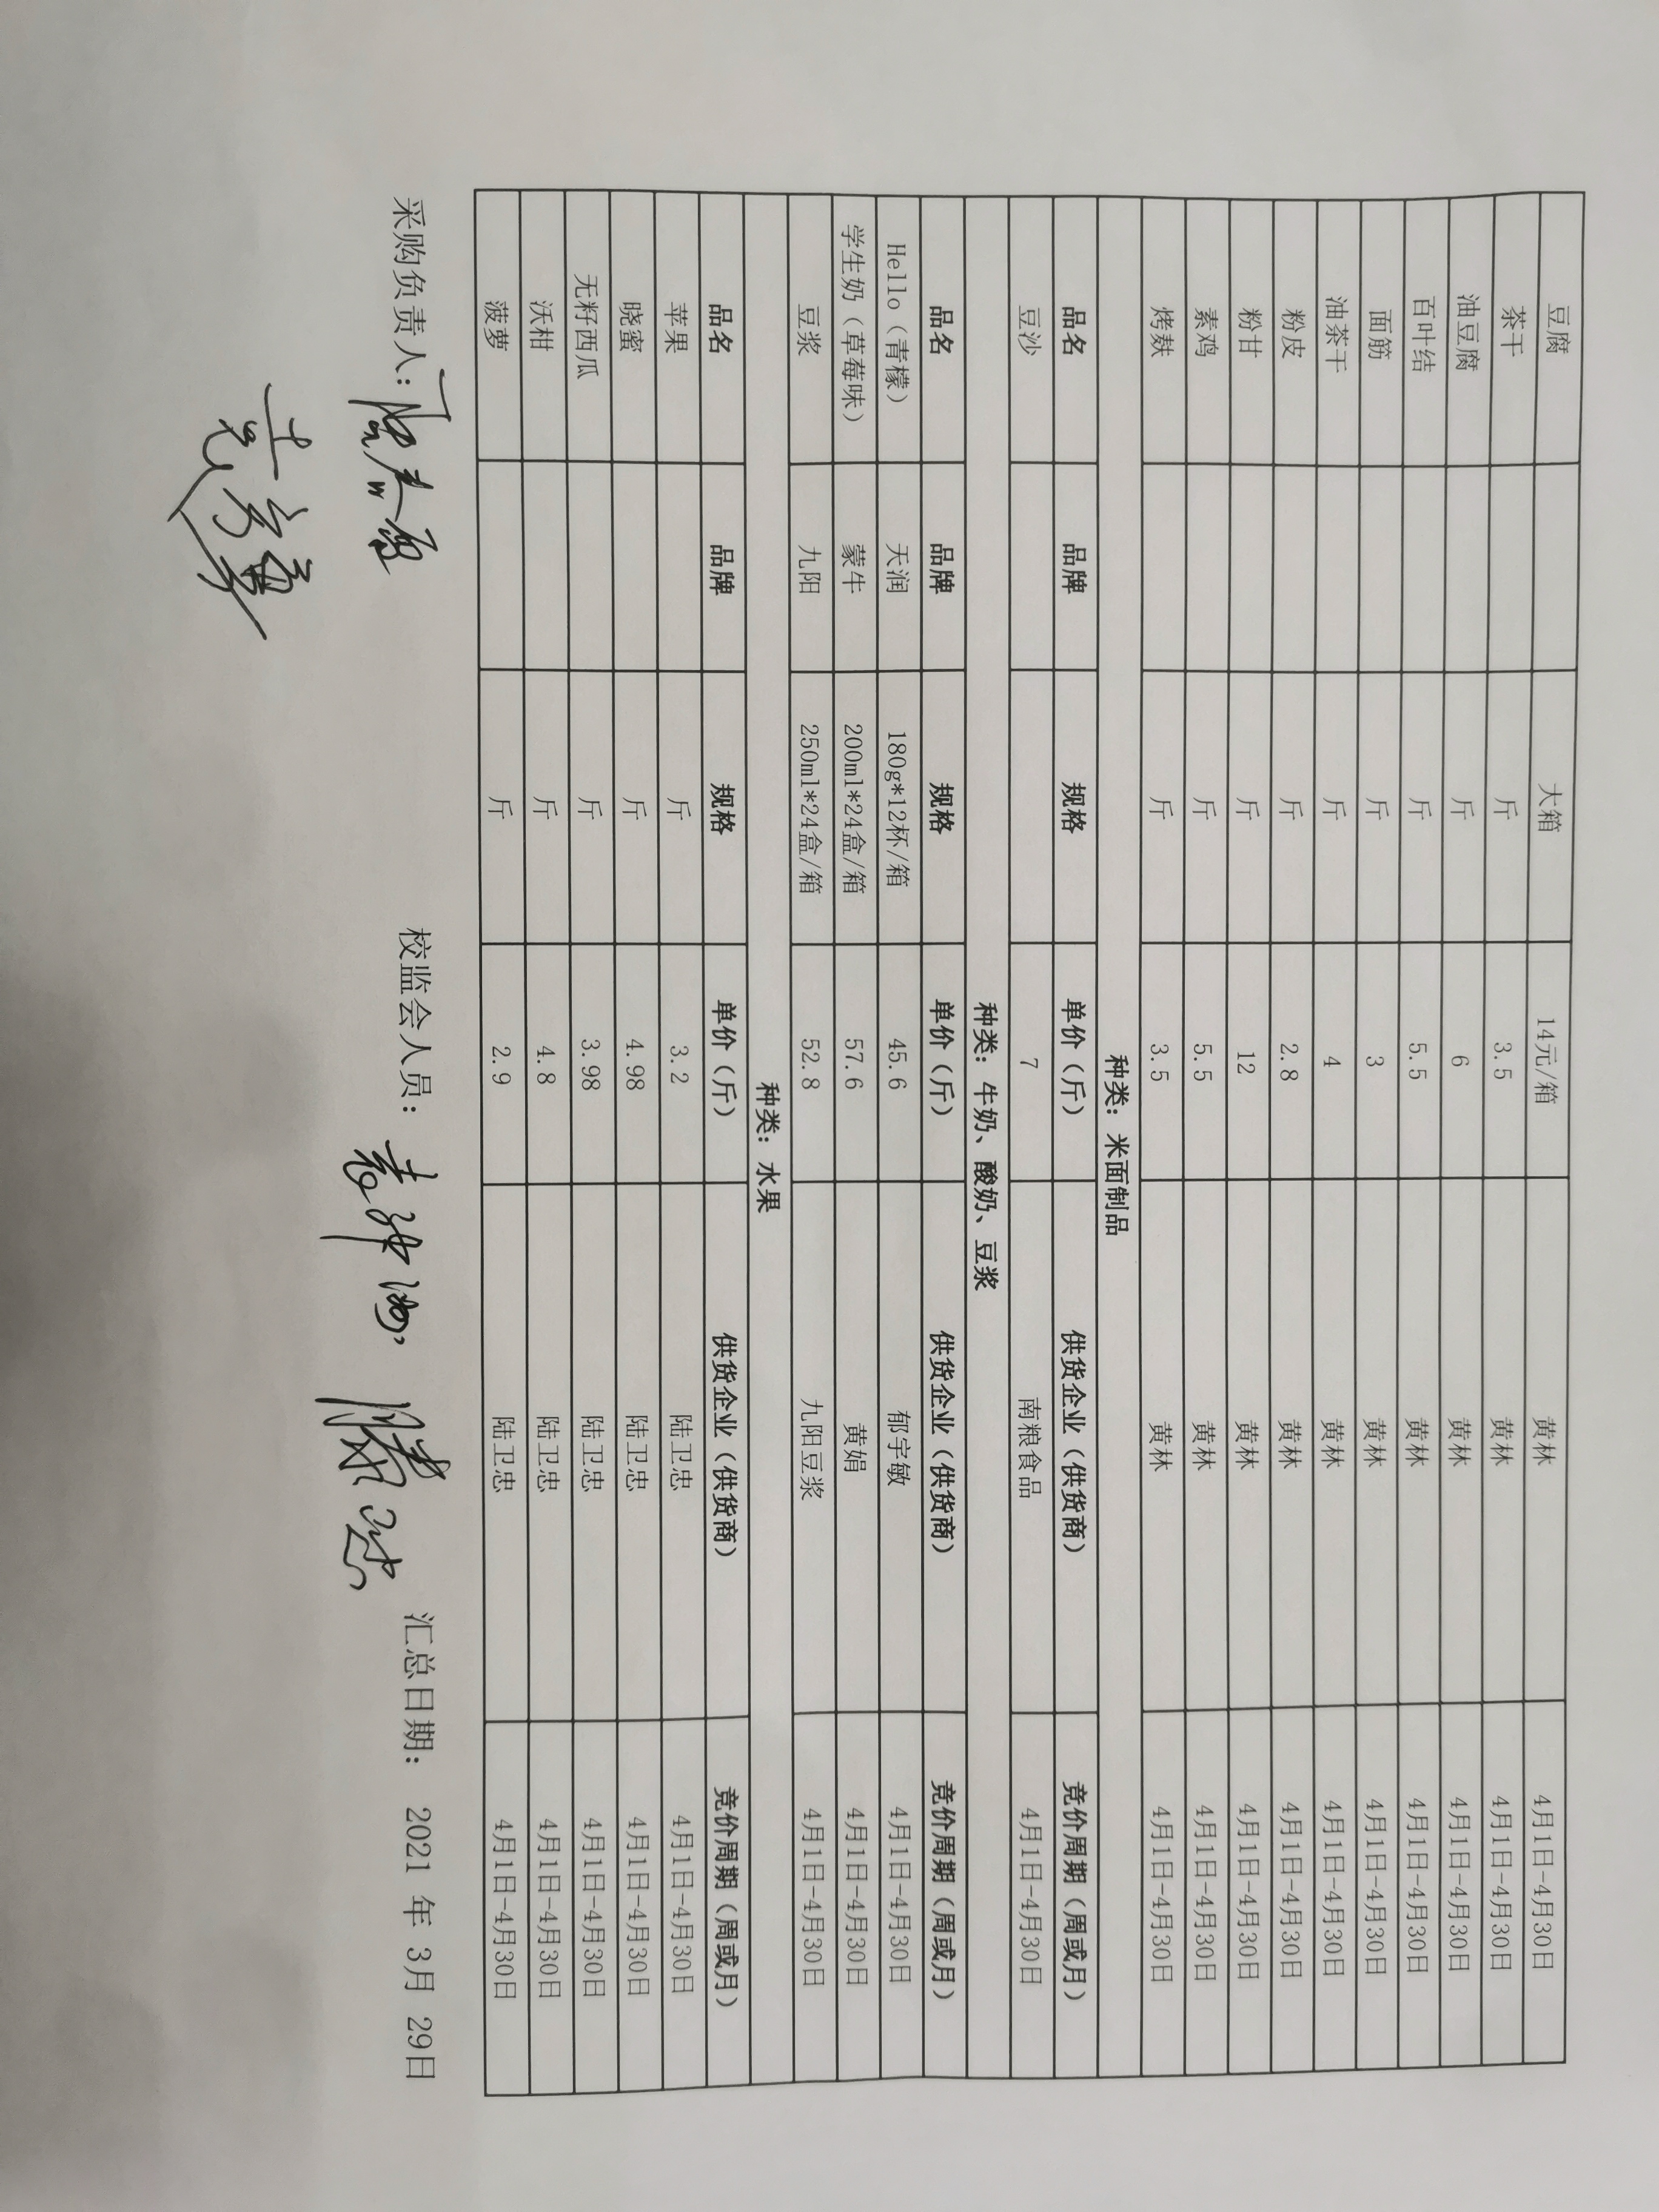 豆腐 大箱 14元/箱 黄林 4月1日-4月30日
茶干 斤 3.5 黄林 4月1日-4月30日
油豆腐 斤 6 黄林 4月1日-4月30日
百叶结 斤 5.5 黄林 4月1日-4月30日
面筋 斤 3 黄林 4月1日-4月30日
油茶干 斤 4 黄林 4月1日-4月30日
粉皮 斤 2.8 黄林 4月1日-4月30日
粉甘 斤 12 黄林 4月1日-4月30日
素鸡 斤 5.5 黄林 4月1日-4月30日
烤麸 斤 3.5 黄林 4月1日-4月30日
种类：米面制品
品名 品牌 规格 单价（斤） 供货企业（供货商） 竞价周期（周或月）
豆沙 7 南粮食品 4月1日-4月30日
种类：牛奶、酸奶、豆浆
品名 品牌 规格 单价（斤） 供货企业（供货商） 竞价周期（周或月）
Hello（青檬） 天润 180g*12杯/箱 45.6 郁宇敏 4月1日-4月30日
学生奶（草莓味） 蒙牛 200ml*24盒/箱 57.6 黄娟 4月1日-4月30日
豆浆 九阳 250ml*24盒/箱 52.8 九阳豆浆 4月1日-4月30日
种类：水果
品名 品牌 规格 单价（斤） 供货企业（供货商） 竞价周期（周或月）
苹果 斤 3.2 陆卫忠 4月1日-4月30日
晓蜜 斤 4.98 陆卫忠 4月1日-4月30日
无籽西瓜 斤 3.98 陆卫忠 4月1日-4月30日
沃柑 斤 4.8 陆卫忠 4月1日-4月30日
菠萝 斤 2.9 陆卫忠 4月1日-4月30日
采购负责人： 校监会人员： 汇总日期： 2021 年 3月 29日